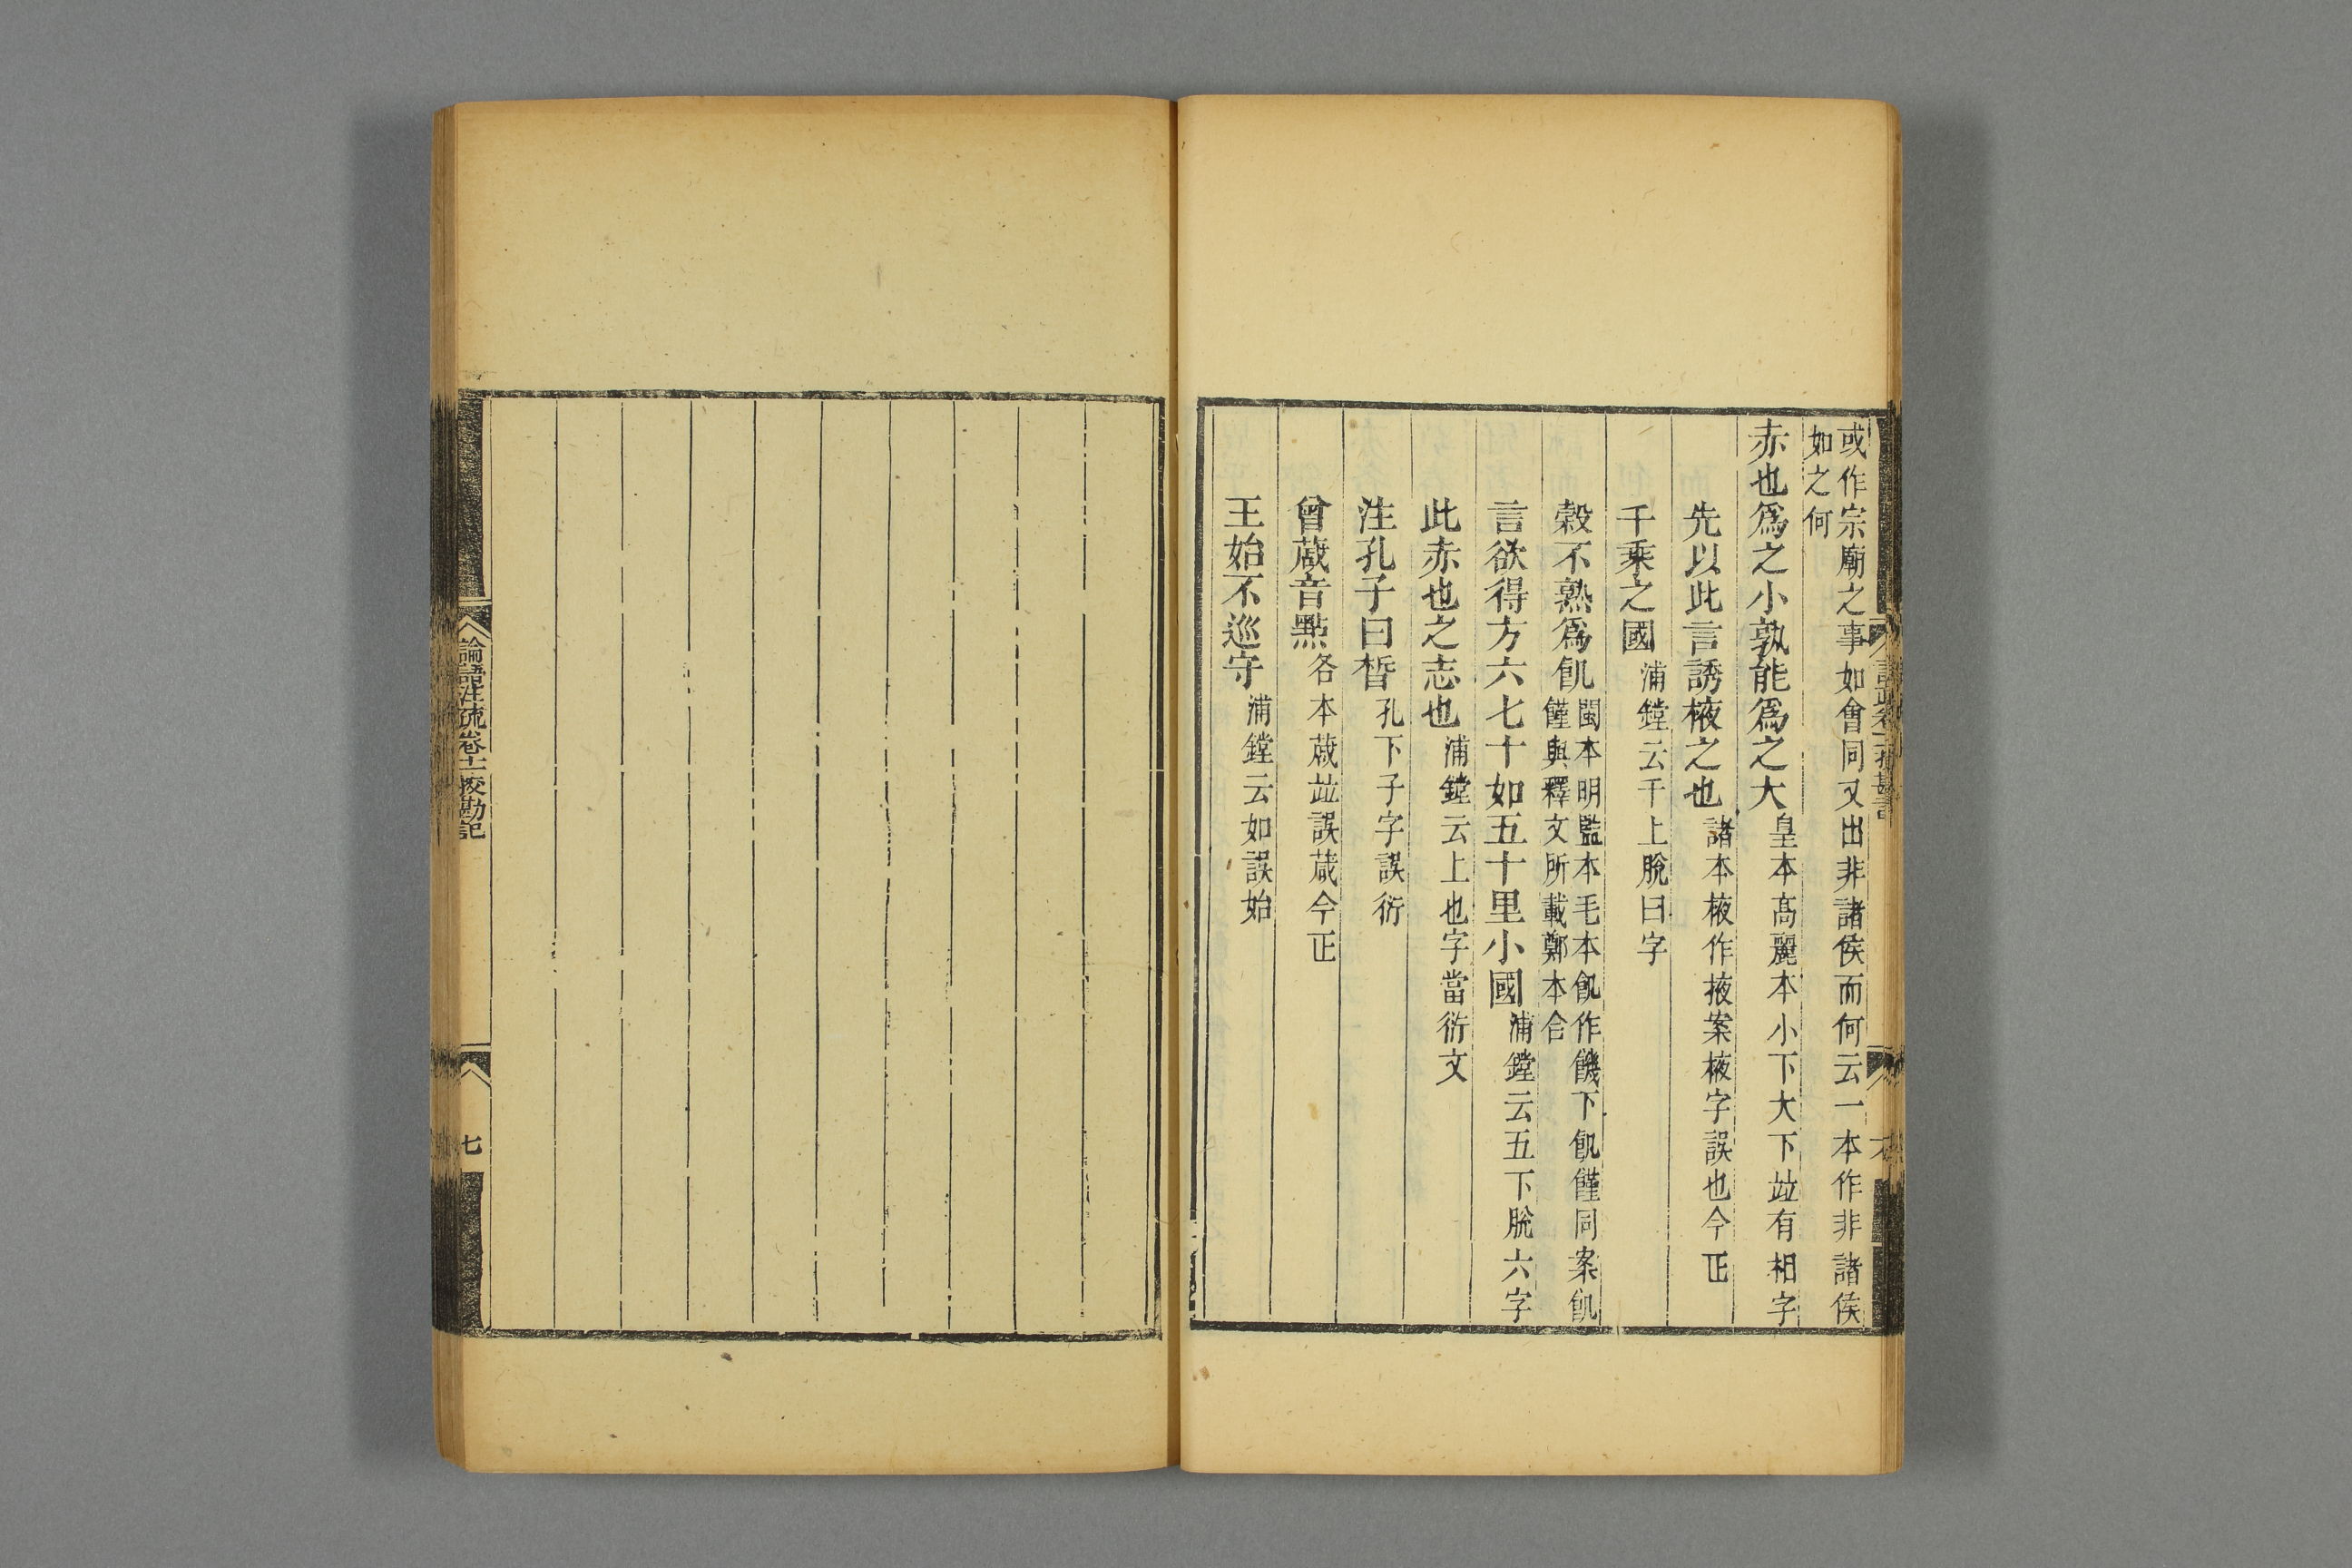 或作宗廟之事如會同又出非諸侯而何云一本作非諸侯
如之何
赤也爲之小孰能爲之大皇本高麗本小下大下竝有相字
先以此言誘棭之也諸本棭作掖案棭字誤也今正
千乗之國浦鏜云千上脫曰字
穀不熟爲飢閩本明監本毛本飢作饑下飢饉同案飢
饉與釋文所載鄭本合
言欲得方六七十如五十里小國浦鏜云五下脫六字
此赤也之志也浦鏜云上也字當衍文
注孔子曰晳孔下子字誤衍
曾蒧音點各本蒧竝誤葴今正
王始不巡守浦鏜云如誤始
論語注疏卷十一挍勘記
七